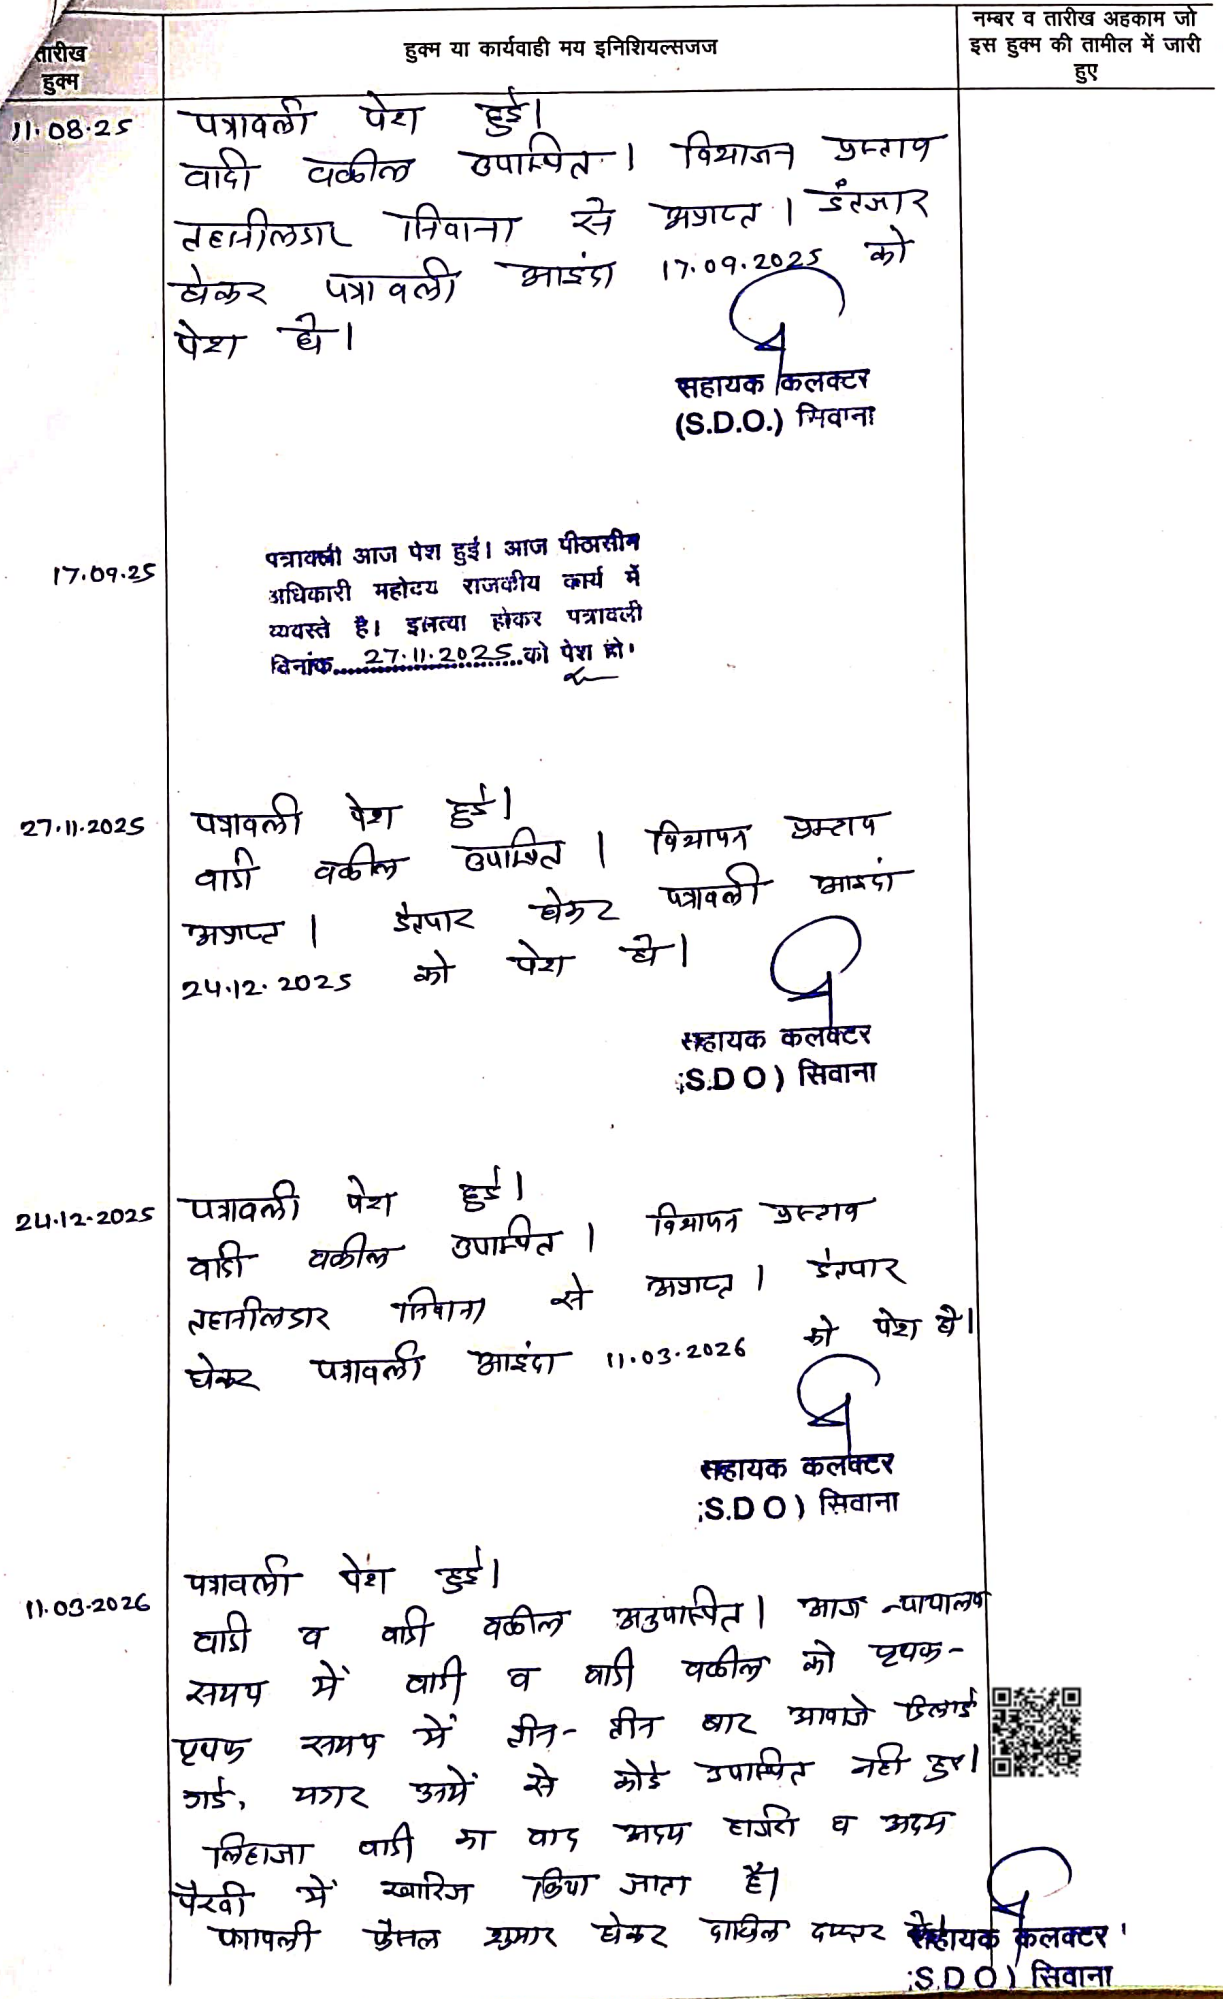 तारीख
हुक्म
हुक्म या कार्यवाही मय इनिशियल्सजज
नम्बर व तारीख अहकाम जो
इस हुक्म की तामील में जारी
हुए
11.08.25
पत्रावली पेश हुई।
वादी वकील उपस्थित। विभाजन प्रस्ताव
तहसीलदार सिवाना से अप्राप्त। इंतजार
होकर पत्रावली आइंदा 17.09.2025 को
पेश हो।
सहायक कलक्टर
(S.D.O.) सिवाना
17.09.25
पत्रावली आज पेश हुई। आज पीठासीन
अधिकारी महोदय राजकीय कार्य में
व्यवस्ते है। इलत्वा होकर पत्रावली
दिनांक 27.11.2025 को पेश हो।
27.11.2025
पत्रावली पेश हुई।
वादी वकील उपस्थित। विभाजन प्रस्ताव
अप्राप्त। इंतजार होकर पत्रावली आइंदा
24.12.2025 को पेश हो।
सहायक कलक्टर
S.D O) सिवाना
24.12.2025
पत्रावली पेश हुई।
वादी वकील उपस्थित। विभाजन प्रस्ताव
तहसीलदार सिवाना से अप्राप्त। इंतजार
होकर पत्रावली आइंदा 11.03.2026 को पेश हो।
सहायक कलक्टर
S.D O) सिवाना
11.03.2026
पत्रावली पेश हुई।
वादी व वादी वकील अनुपस्थित। आज न्यायालय
समय में वादी व वादी वकील को पृथक-
पृथक समय में तीन-तीन बार आवाजे दिलाई
गई, मगर उनमें से कोई उपस्थित नही हुए।
लिहाजा वादी का वाद अदम हाजरी व अदम
पैरवी में खारिज किया जाता है।
पत्रावली फैसल शुमार होकर दाखिल दफ्तर हो।
सहायक कलक्टर
S.D O) सिवाना